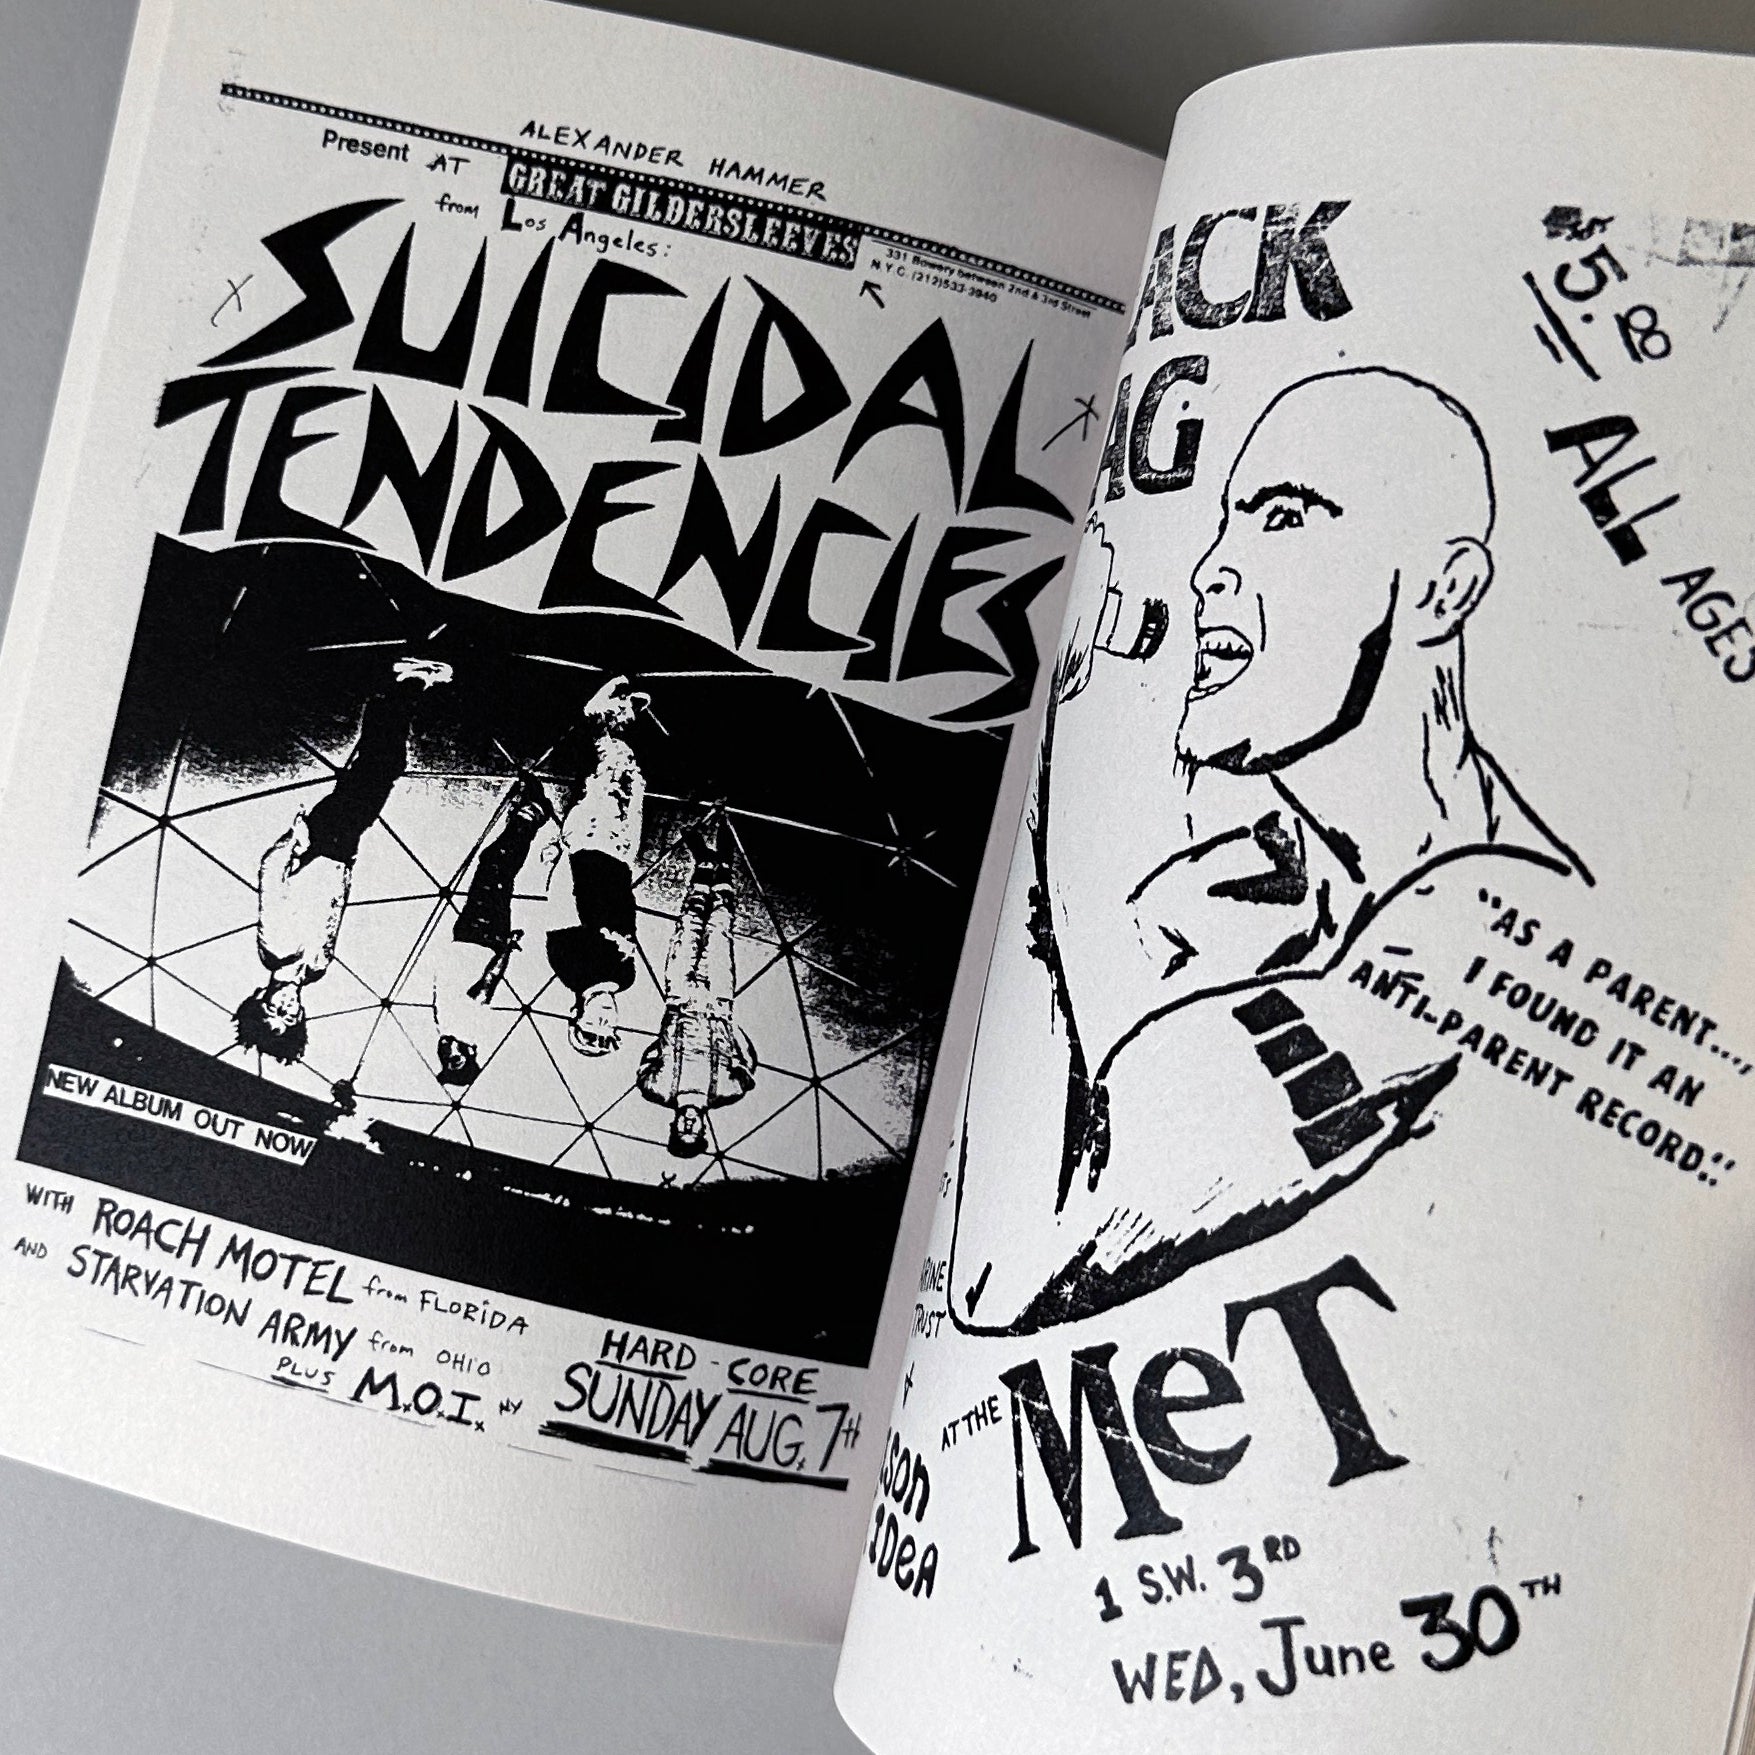 ALEXANDER HAMMER
Present AT GREAT GILDERSLEEVES
331 Bowery between 2nd & 3rd Street
N.Y.C. (212)533-3940
from Los Angeles:
SUICIDAL
TENDENCIES
NEW ALBUM OUT NOW
WITH ROACH MOTEL from FLORIDA
AND STARVATION ARMY from OHIO
PLUS M.O.I. NY
HARD-CORE
SUNDAY AUG. 7th
ACK
AG
$5.00
ALL AGES
"AS A PARENT....,
I FOUND IT AN
ANTI-PARENT RECORD."
RINE
TRUST
SON
IDEA
AT THE MeT
1 S.W. 3RD
WED, June 30TH